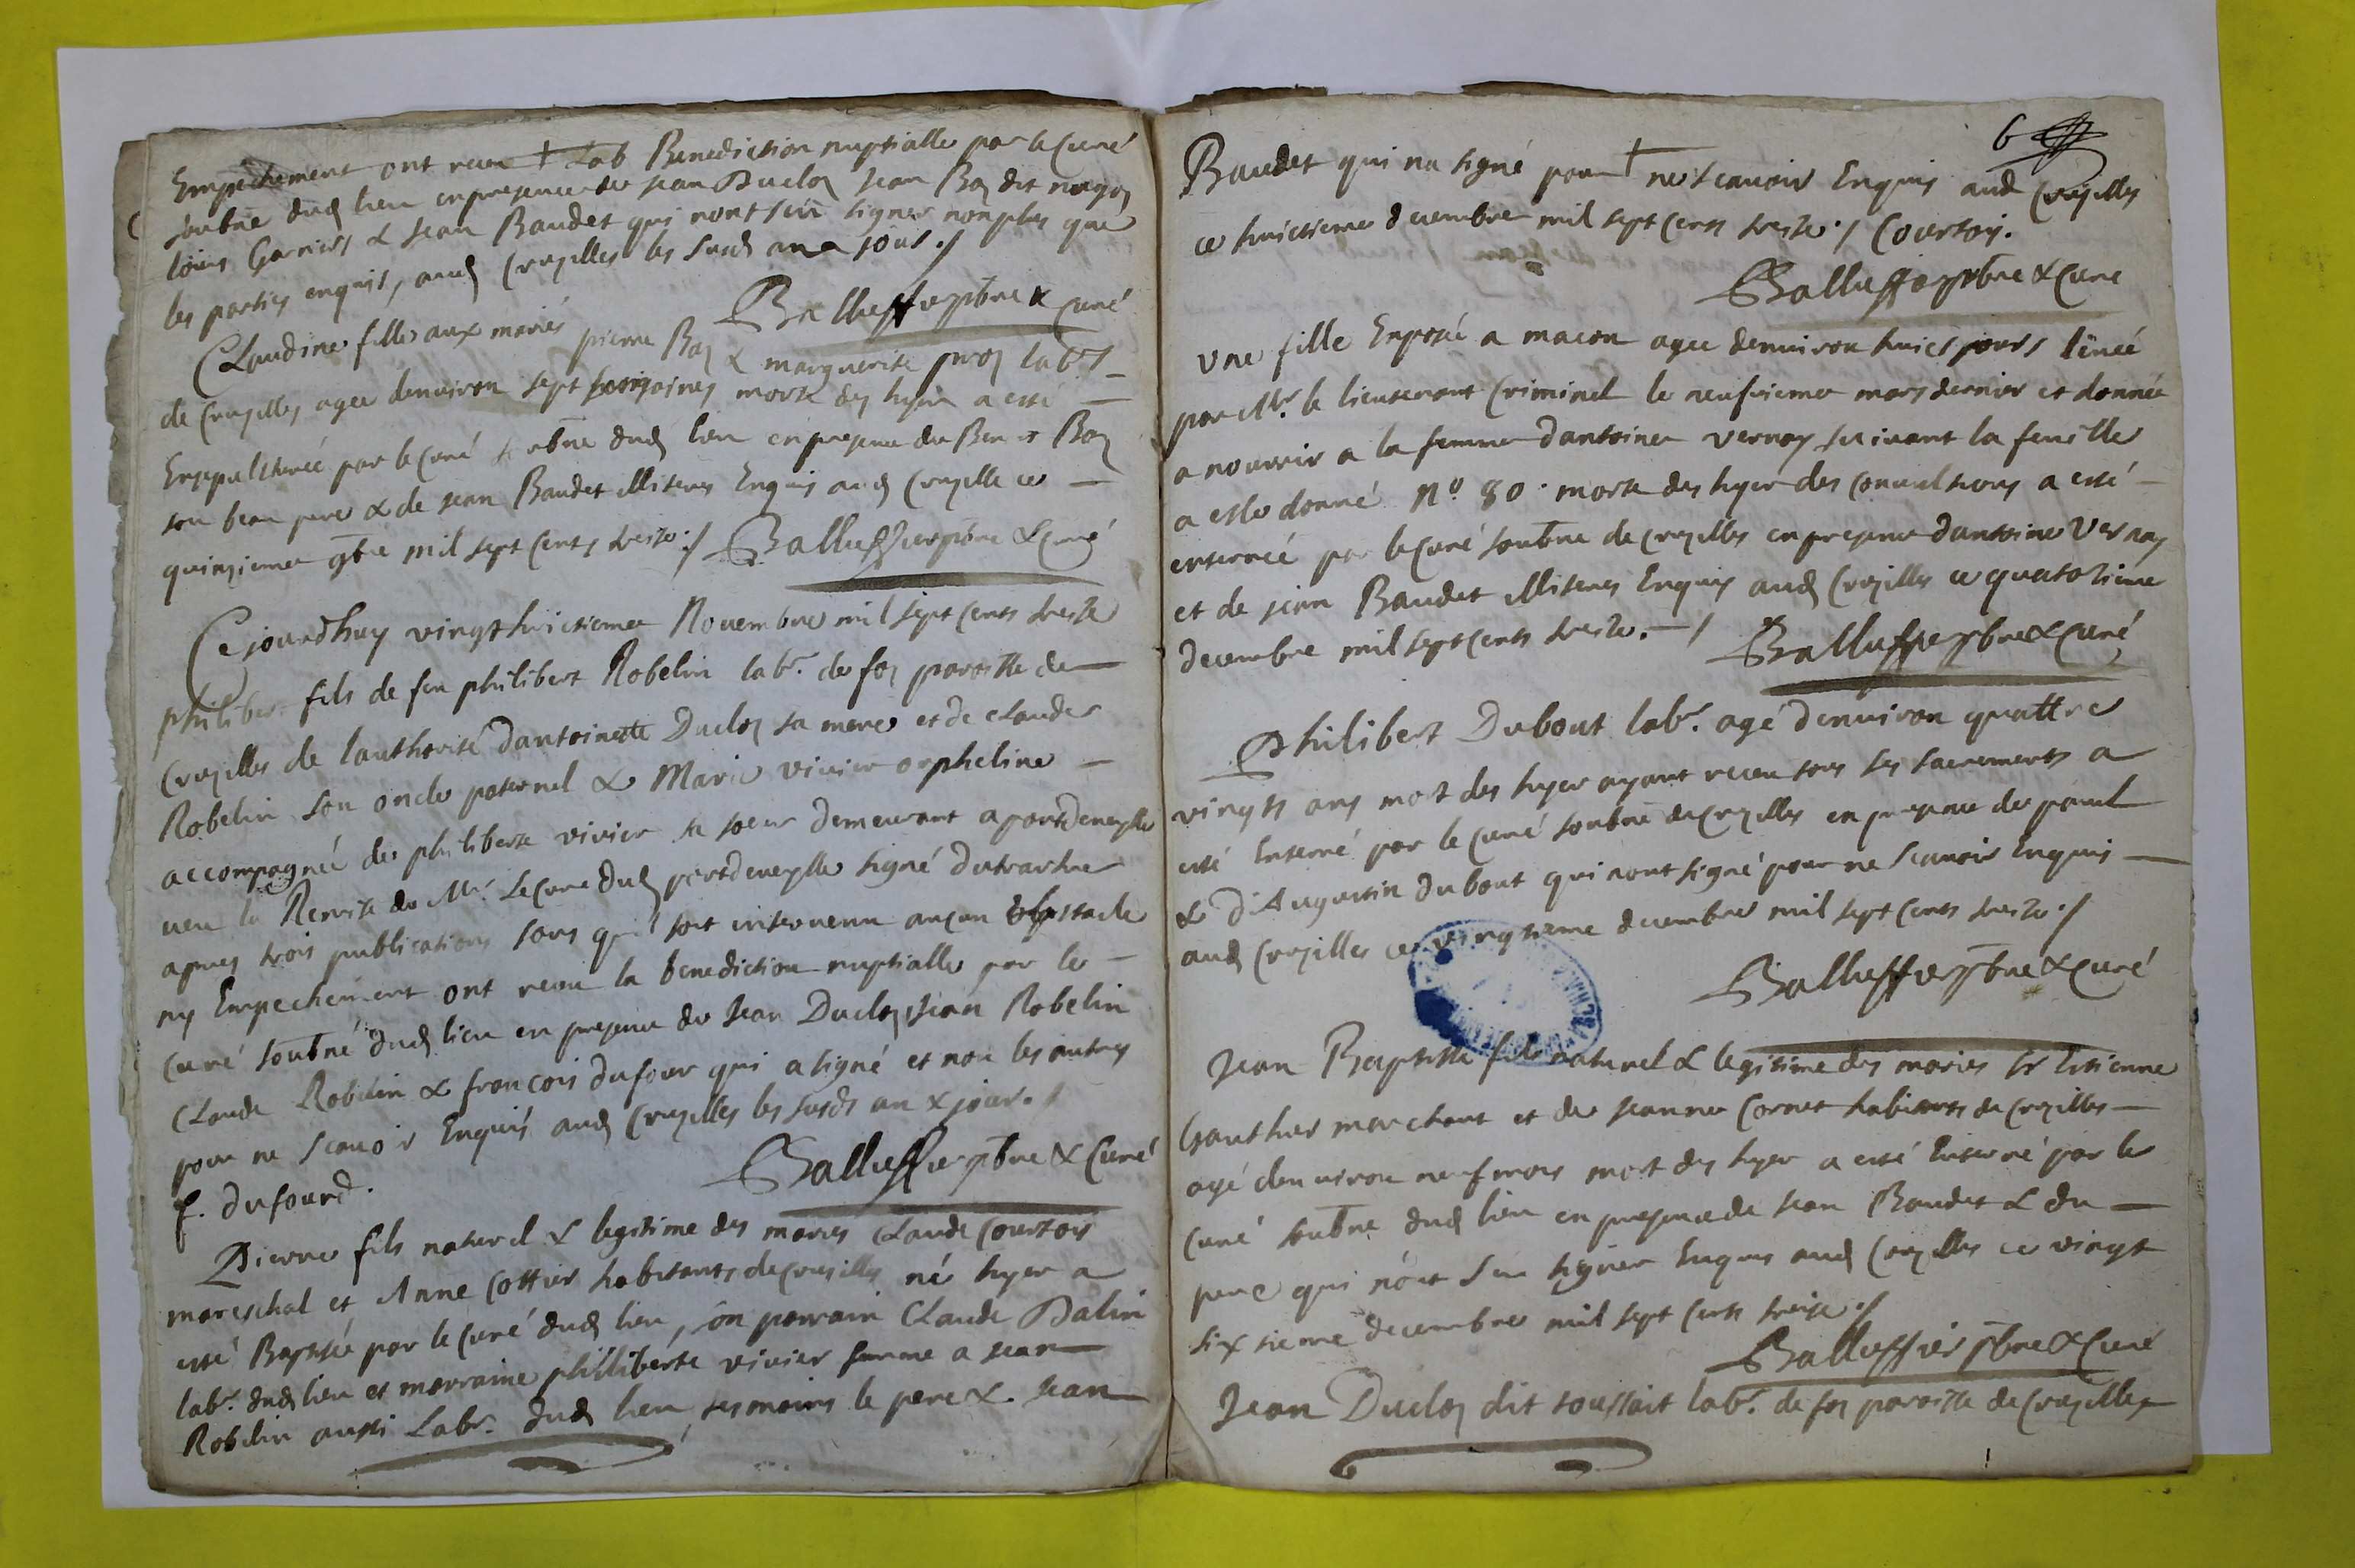 Empechement ont receu + Lab Benediction nuptialle par le Curé
soubne dud lieu en presence de Jean Duclos Jean Boz dit
loüis Garnier & Jean Baudet qui nont sceu signer nonplus que
les parties enquis, aud Cruzilles les susd an & jour ./
Balluffier pbre & Curé
Claudine fille aux mariés pierre Boz & marguerite labrs
de Cruzilles agee denuiron sept semaines morte des hyer a esté
Ensepulturéé par le Curé soubne dud lieu en presence de Boz
son beau pere & de Jean Baudet Misens Enquis aud Cruzille ce
quinzieme 9bre mil sept Cents treize ./ Balluffier pbre & Curé
Cejourdhuy vingt huictieme Nouembre mil sept Cents treize
philibert fils de feu philibert Robelin labr. de foz paroisse de
Cruzilles de lauthorité dantoinette Duclos sa mere et de claude
Robelin son oncle paternel & Marie vivier orpheline
accompagnéé de philiberte vivier sa soeur demeurant a pontdeueylle
ueu la Remise de Mr. Le Cure dud pontdeueylle signé dutartre
apres trois publications sans quil soit interuenu aucun obstacle
ny Empechement ont receu la benediction nuptialle par le
Curé soubné dud lieu en presence de Jean Duclos, Jean Robelin
Claude Robelin & francois dufour qui a signé et non les autres
pour ne Scauoir Enquis aud Cruzilles les susds an & jour ./
Balluffier pbre & Curé
f. dufourd.
Pierre fils naturel & legitime des maries Claude Courtois
mareschal et Anne Cottier habitants de Cruzilles né hyer a
esté Baptisé par le Curé dud lieu, son parrain Claude Dalin
labr. dud lieu et marraine philliberte vivier femme a Jean
Robelin aussi Labr. dud lieu, tesmoins le pere & Jean
6
Baudet qui na signé pour + ne scauoir Enquis aud Cruzilles
ce huictieme decembre mil sept Cents treize ./ Courtois.
Balluffier pbre & Cure
Une fille Exposéé a macon agee denuiron huict jours leuéé
par Mr. le lieutenant Criminel le neufuieme mars dernier et donnéé
a nourrir a la femme dantoine vernay suiuant la feuille
a elle donné No 80. morte des hyer des Conuulsions a esté
enterréé par le Curé soubne de Cruzilles en presence dantoine Vernay
et de jean Baudet Misens Enquis aud Cruzilles ce quatorzieme
decembre mil sept Cents treize. — /
Balluffier pbre & Curé
Philibert Dubout labr. agé denuiron quattre
vingts ans mort des hyer ayant receu tous ses sacrements a
esté Enterré par le Curé soubne de Cruzilles en presence de paul
& d'Augustin dubout qui nont signé pour ne scauoir Enquis
aud Cruzilles ce vingtieme decembre mil sept Cents treize ./
Balluffier pbre & Curé
Jean Baptiste fils naturel & legitime des maries Sr Etienne
Gauthier marchant et de Jeanne Cornet habitants de Cruzilles
agé denuiron neuf mois mort des hyer a esté Enterré par le
Curé soubne dud lieu en presence de Jean Baudet & du
pere qui nont sceu signer Enquis aud Cruzilles ce vingt
sixsieme decembre mil sept Cents treize ./
Balluffier pbre & Curé
Jean Duclos dit toussait labr. de foz paroisse de Cruzilles